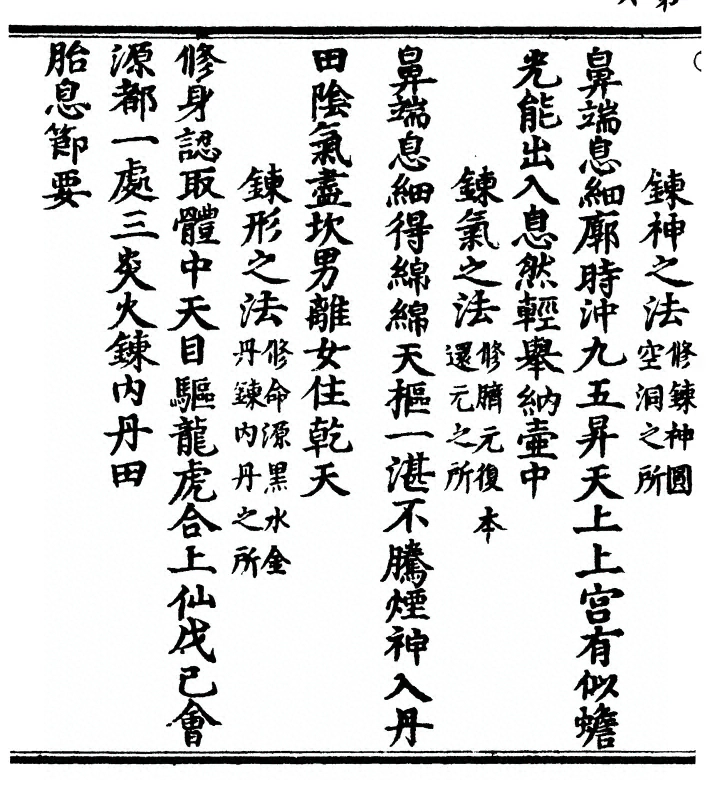 鍊神之法修鍊神圓空洞之所
鼻端息細廓時沖九五昇天上上宫有似蟾
光能出入息然輕舉納壷中
鍊氣之法修臍元復本還元之所
鼻端息細得綿綿天樞一湛不騰煙神入丹
田陰氣盡坎男離女住乾天
鍊形之法修命源黑水金丹鍊内丹之所
修身認取體中天目驅龍虎合上仙戊己會
源都一處三炎火鍊内丹田
胎息節要